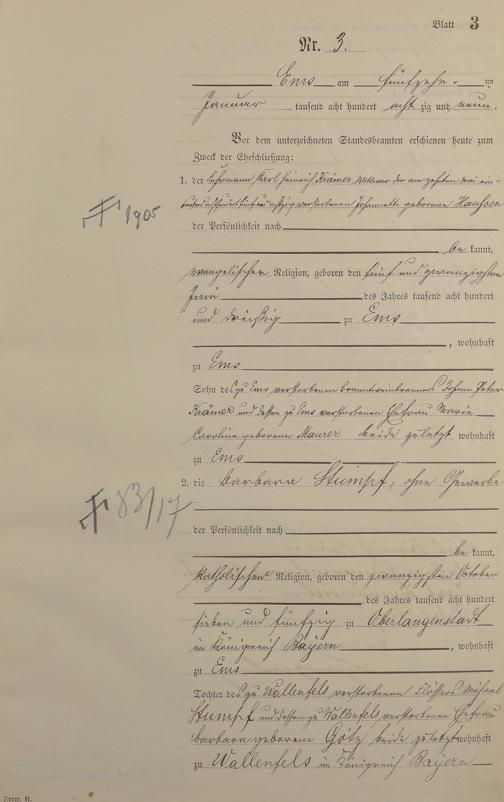 Blatt 3
Nr. 3.
Ems am fünfzehn ten
Januar tausend acht hundert acht zig und neun.
Vor dem unterzeichneten Standesbeamten erschienen heute zum
Zweck der Eheschließung:
1. der Fuhrmann Karl Heinrich Krämer, Wittwer der am zehnten Mai ein-
tausend achthundert fünf und achtzig verstorbenen Johannette geborene Haussen
† 1905
der Persönlichkeit nach
be kannt,
evangelischer Religion, geboren den fünf und zwanzigsten
Juni des Jahres tausend acht hundert
und dreißig zu Ems
, wohnhaft
zu Ems
Sohn des zu Ems verstorbenen Branntweinbrenners Johann Peter
Krämer und dessen zu Ems verstorbenen Ehefrau Marie
Caroline geborene Maurer beide zuletzt wohnhaft
zu Ems
2. die Barbara Stumpf, ohne Gewerbe
† 83/17
der Persönlichkeit nach
be kannt,
katholischer Religion, geboren den zwanzigsten October
des Jahres tausend acht hundert
sieben und fünfzig zu Oberlangenstadt
im Königreich Bayern , wohnhaft
zu Ems
Tochter des zu Wallenfels verstorbenen Flößers Michael
Stumpf und dessen zu Wallenfels verstorbenen Ehefrau
Barbara geborene Götz beide zuletzt wohnhaft
zu Wallenfels im Königreich Bayern
Form.